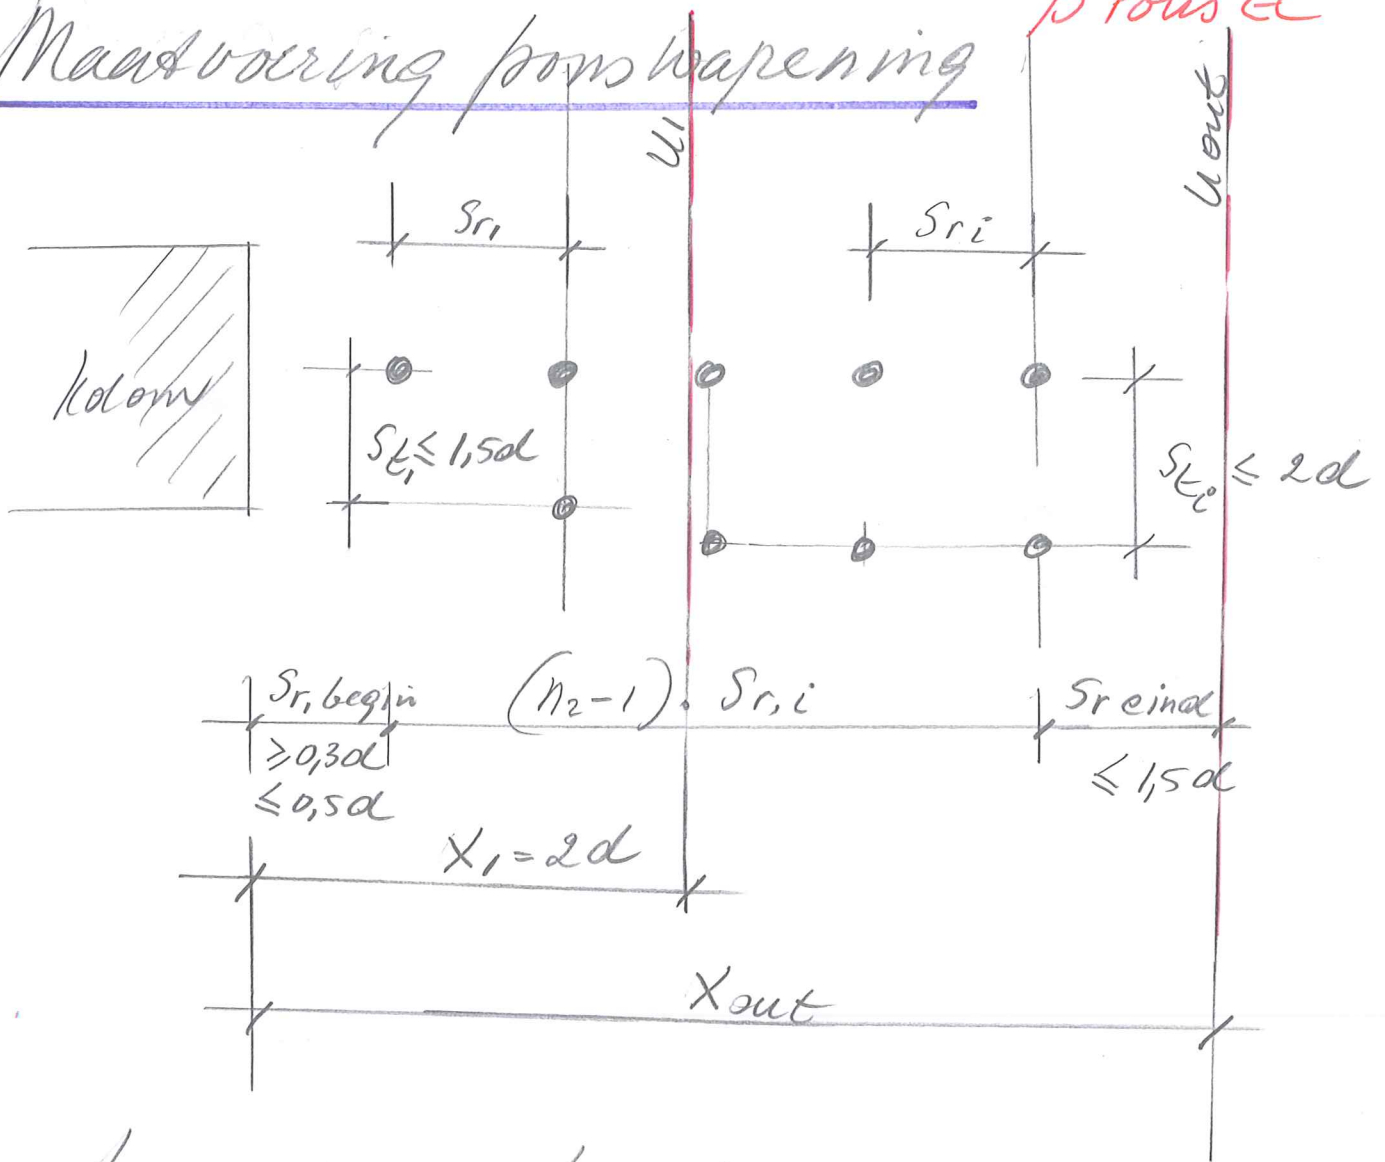 Maatvoering ponswapening
u1
u out
Sr1
Sri
kolom
St1 ≤ 1,5d
Sti ≤ 2d
Sr, begin
(n2-1). Sr,i
Sr eind
≥0,3d
≤0,5d
≤ 1,5d
X1 = 2d
Xout